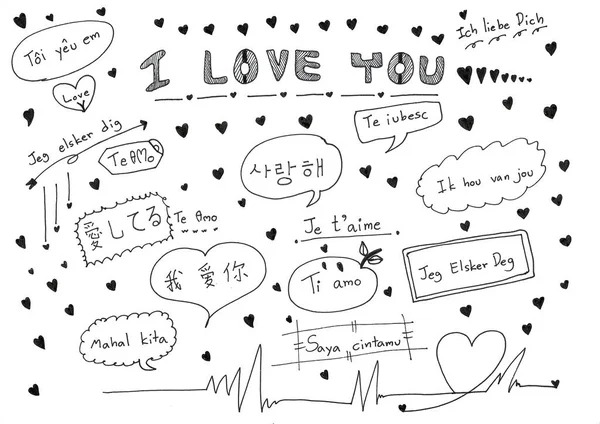 Tôi yêu em
Ich liebe Dich
I LOVE YOU
Love
Te iubesc
Jeg elsker dig
Te AMo
사랑해
Ik hou van jou
愛してる
Te Amo
Je t'aime
我 愛 你
Ti amo
Jeg Elsker Deg
Mahal kita
Saya cintamu